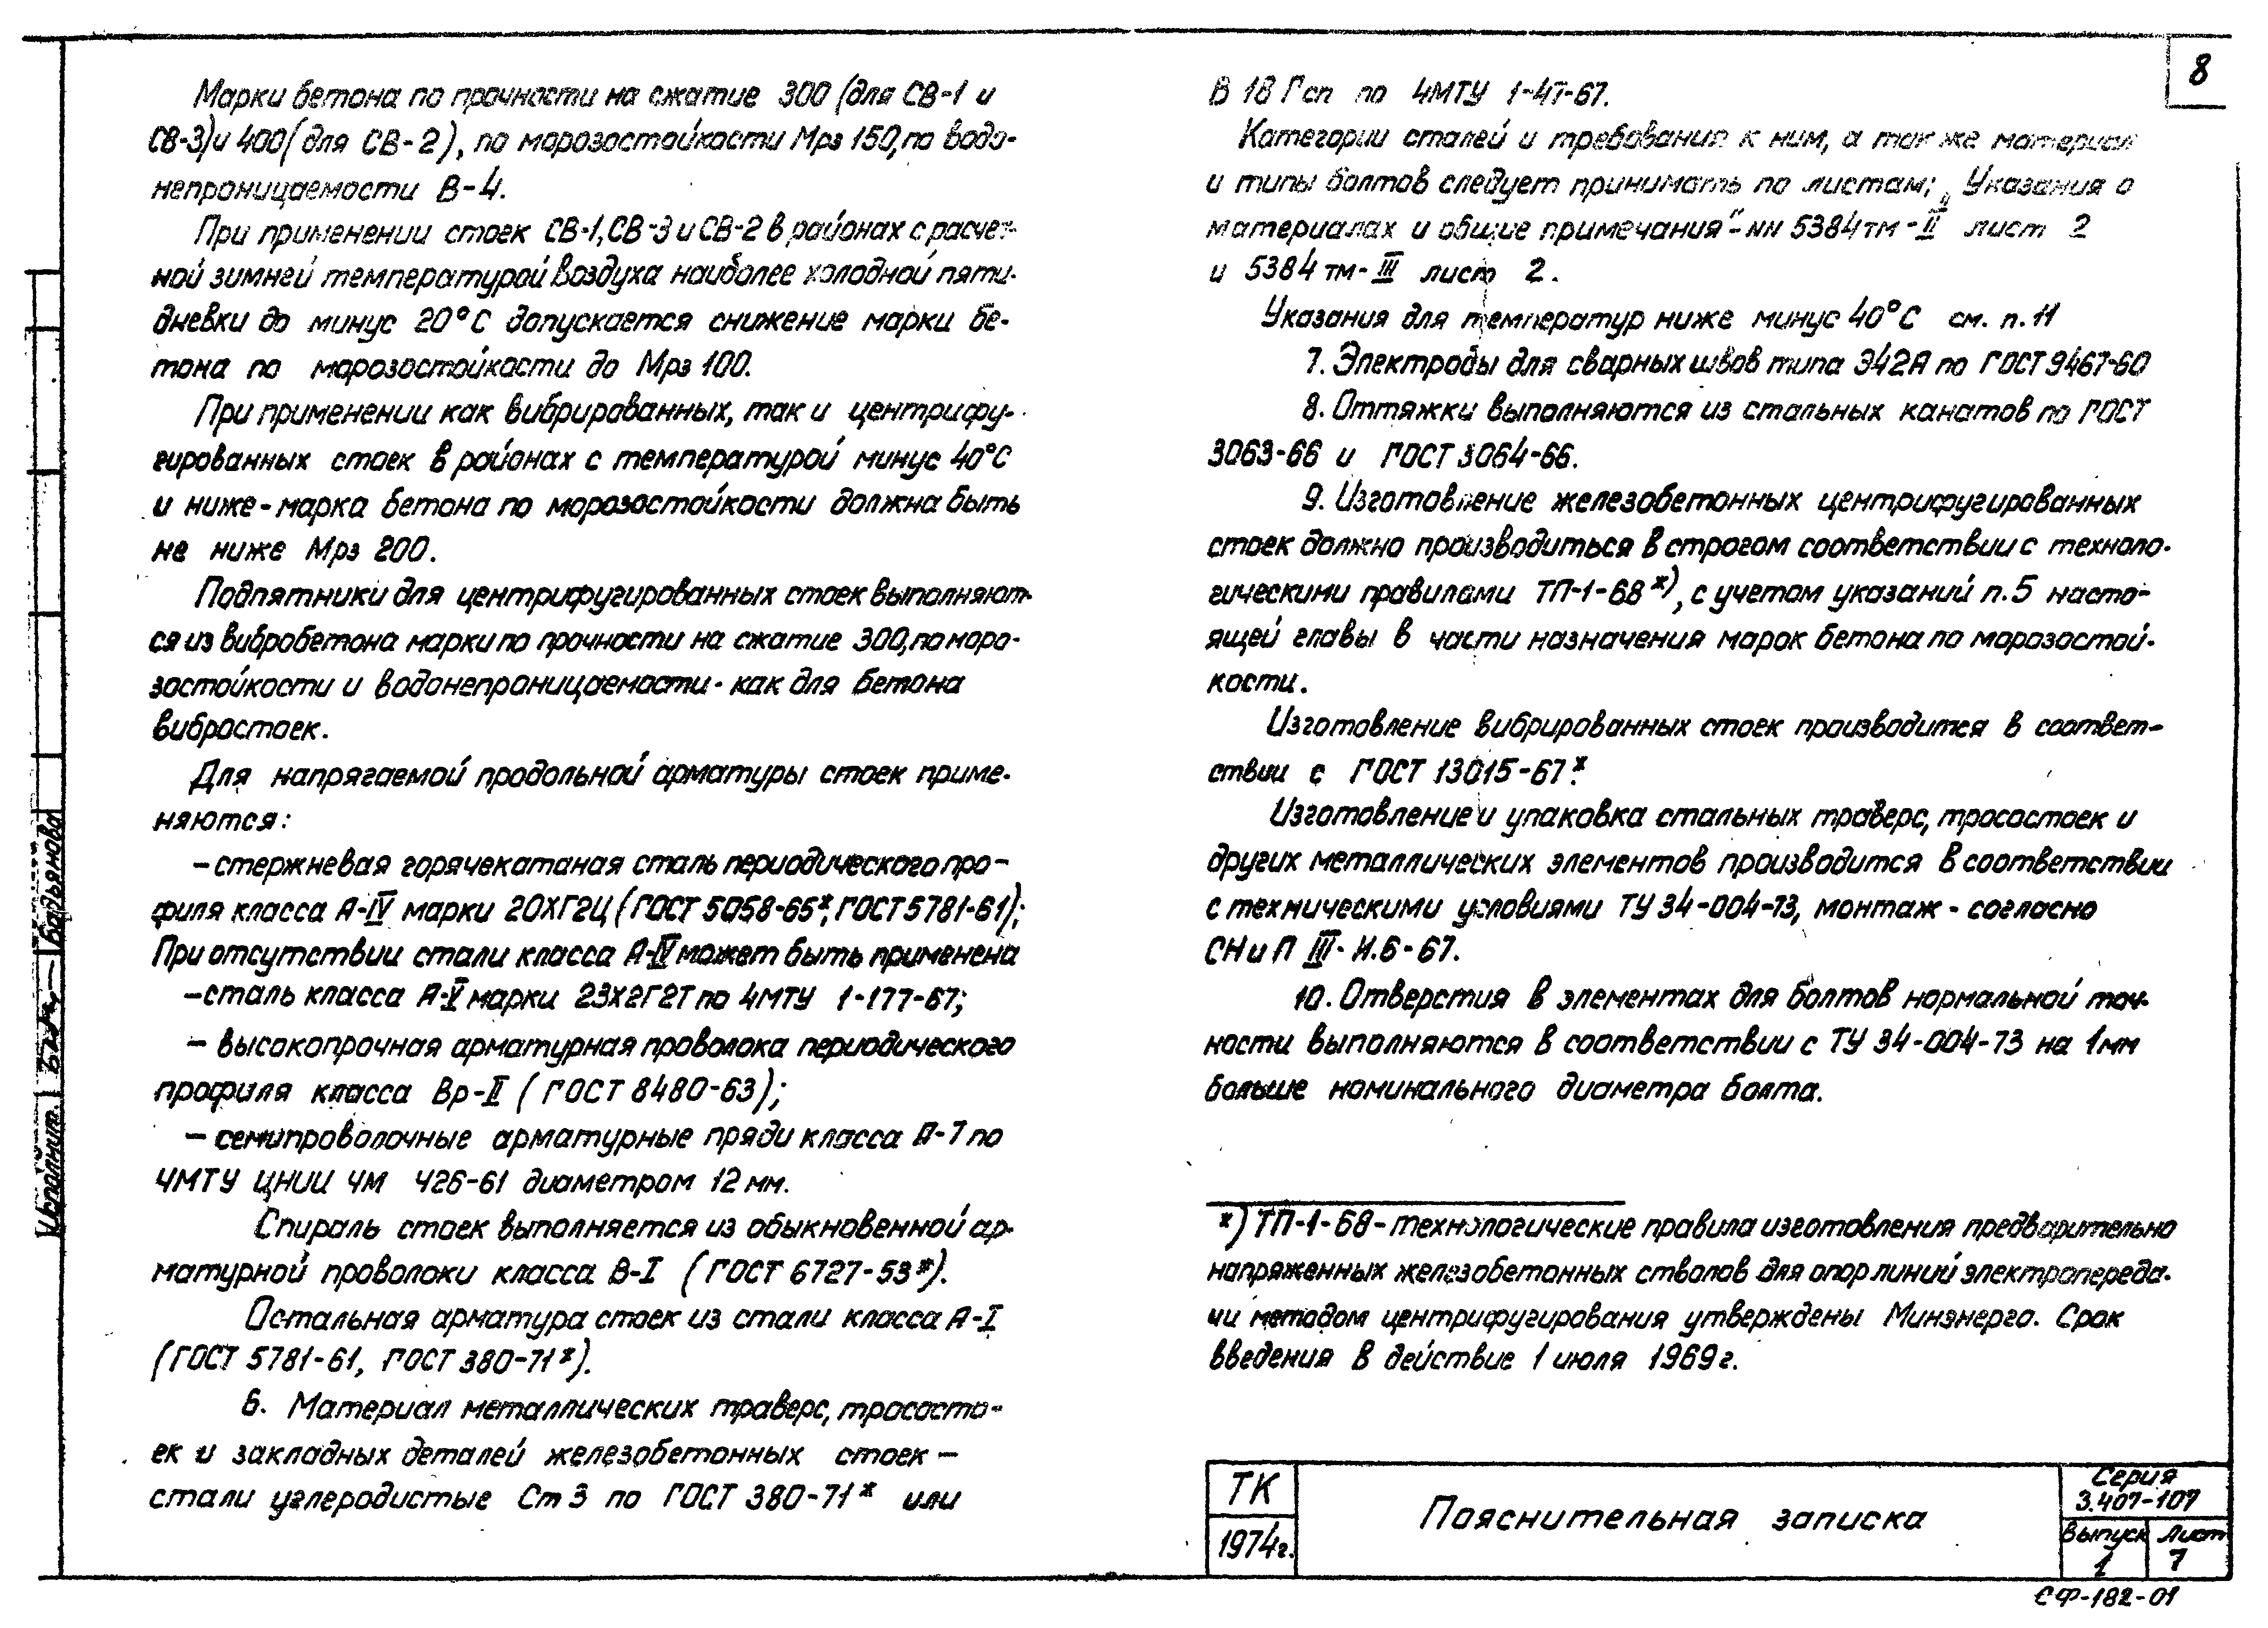 8
Марки бетона по прочности на сжатие 300 (для СВ-1 и
СВ-3) и 400 (для СВ-2), по морозостойкости Мрз 150, по водо-
непроницаемости В-4.
При применении стоек СВ-1, СВ-3 и СВ-2 в районах с расчет-
ной зимней температурой воздуха наиболее холодной пяти-
дневки до минус 20°С допускается снижение марки бе-
тона по морозостойкости до Мрз 100.
При применении как вибрированных, так и центрифу-
гированных стоек в районах с температурой минус 40°С
и ниже - марка бетона по морозостойкости должна быть
не ниже Мрз 200.
Подпятники для центрифугированных стоек выполняют-
ся из вибробетона марки по прочности на сжатие 300, по моро-
зостойкости и водонепроницаемости - как для бетона
вибростоек.
Для напрягаемой продольной арматуры стоек приме-
няются:
- стержневая горячекатаная сталь периодического про-
филя класса А-IV марки 20ХГ2Ц (ГОСТ 5058-65*, ГОСТ 5781-61);
При отсутствии стали класса А-IV может быть применена
- сталь класса А-V марки 23Х2Г2Т по ЧМТУ 1-177-67;
- высокопрочная арматурная проволока периодического
профиля класса Вр-II (ГОСТ 8480-63);
- семипроволочные арматурные пряди класса П-7 по
ЧМТУ ЦНИИ ЧМ 426-61 диаметром 12 мм.
Спираль стоек выполняется из обыкновенной ар-
матурной проволоки класса В-I (ГОСТ 6727-53*).
Остальная арматура стоек из стали класса А-I
(ГОСТ 5781-61, ГОСТ 380-71*).
6. Материал металлических траверс, трососто-
ек и закладных деталей железобетонных стоек -
стали углеродистые Ст 3 по ГОСТ 380-71* или
В 18 Гсп по ЧМТУ 1-47-67.
Категории сталей и требования к ним, а так же материал
и типы болтов следует принимать по листам; „Указания о
материалах и общие примечания" - нн 5384тм-II лист 2
и 5384тм-III лист 2.
Указания для температур ниже минус 40°С см. п. 11
7. Электроды для сварных швов типа Э42А по ГОСТ 9467-60
8. Оттяжки выполняются из стальных канатов по ГОСТ
3063-66 и ГОСТ 3064-66.
9. Изготовление железобетонных центрифугированных
стоек должно производиться в строгом соответствии с техноло-
гическими правилами ТП-1-68*), с учетом указаний п. 5 насто-
ящей главы в части назначения марок бетона по морозостой-
кости.
Изготовление вибрированных стоек производится в соответ-
ствии с ГОСТ 13015-67*.
Изготовление и упаковка стальных траверс, тросостоек и
других металлических элементов производится в соответствии
с техническими условиями ТУ 34-004-73, монтаж - согласно
СНиП III-И.6-67.
10. Отверстия в элементах для болтов нормальной точ-
ности выполняются в соответствии с ТУ 34-004-73 на 1мм
больше номинального диаметра болта.
*) ТП-1-68 - технологические правила изготовления предварительно
напряженных железобетонных стволов для опор линий электропереда-
чи методом центрифугирования утверждены Минэнерго. Срок
введения в действие 1 июля 1969г.
ТК
1974г.
Пояснительная записка
Серия
3.407-107
Выпуск
1
Лист
7
СФ-182-01
Исполнит.